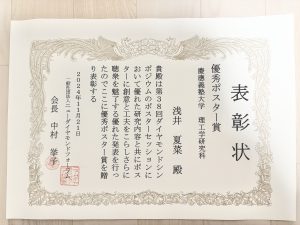 表彰状
優秀ポスター賞
慶應義塾大学　理工学研究科
浅井　夏菜　殿
貴殿は第３８回ダイヤモンドシン
ポジウムのポスターセッションに
おいて優れた研究内容と共にポス
ターに創意と工夫をこらしさらに
聴衆を魅了する優れた発表を行っ
たのでここに優秀ポスター賞を贈
り表彰する
２０２４年１１月２１日
一般社団法人ニューダイヤモンドフォーラム
会長　中村　挙子